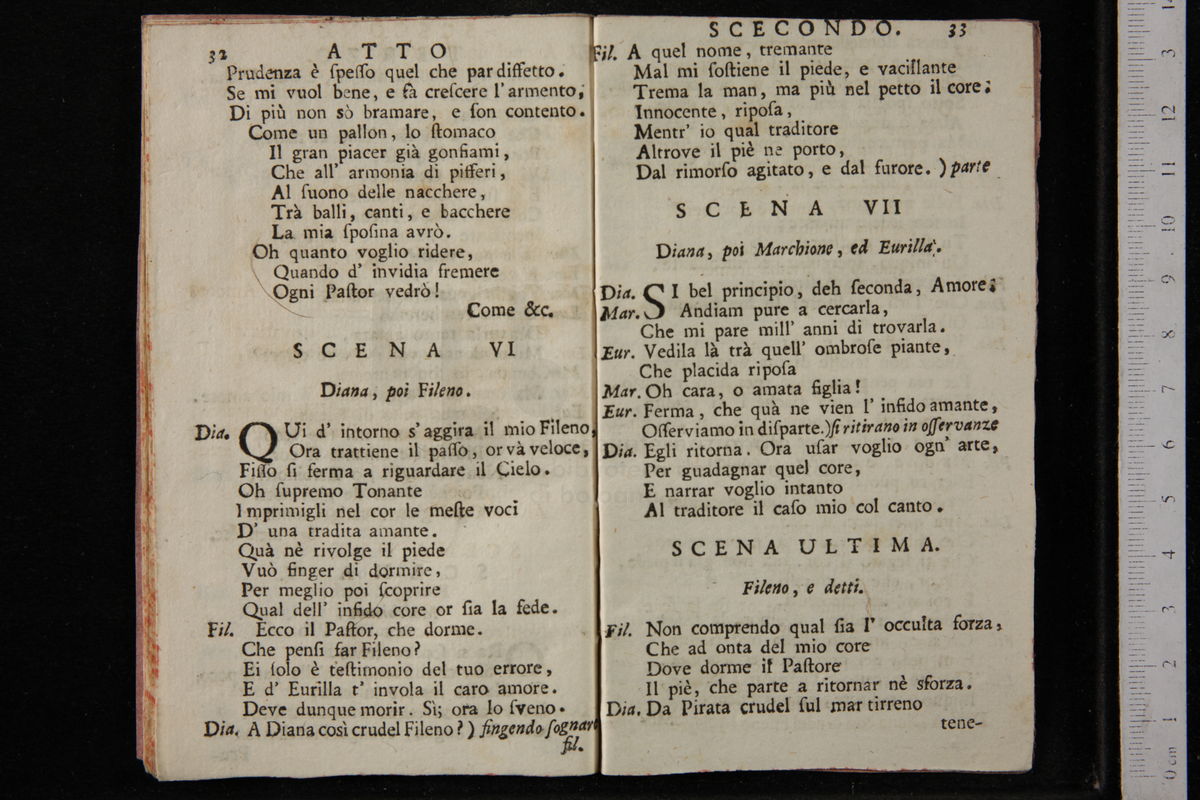 32 ATTO
Prudenza è ſpeſſo quel che par diffetto.
Se mi vuol bene, e fà creſcere l'armento,
Di più non sò bramare, e ſon contento.
Come un pallon, lo ſtomaco
Il gran piacer già gonfiami,
Che all' armonia di pifferi,
Al ſuono delle nacchere,
Trà balli, canti, e bacchere
La mia ſpoſina avrò.
Oh quanto voglio ridere,
Quando d' invidia fremere
Ogni Paſtor vedrò!
Come &c.
SCENA VI
Diana, poi Fileno.
Dia. QUi d' intorno s'aggira il mio Fileno,
Ora trattiene il paſſo, or và veloce,
Fiſſo ſi ferma a riguardare il Cielo.
Oh ſupremo Tonante
Imprimigli nel cor le meſte voci
D' una tradita amante.
Quà nè rivolge il piede
Vuò finger di dormire,
Per meglio poi ſcoprire
Qual dell' infido core or ſia la fede.
Fil. Ecco il Paſtor, che dorme.
Che penſi far Fileno?
Ei ſolo è teſtimonio del tuo errore,
E d' Eurilla t' invola il caro amore.
Deve dunque morir. Sì; ora lo ſveno.
Dia. A Diana così crudel Fileno?) fingendo ſognar
fil.
SCECONDO. 33
Fil. A quel nome, tremante
Mal mi ſoſtiene il piede, e vacillante
Trema la man, ma più nel petto il core;
Innocente, ripoſa,
Mentr' io qual traditore
Altrove il piè ne porto,
Dal rimorſo agitato, e dal furore. ) parte
SCENA VII
Diana, poi Marchione, ed Eurilla.
Dia. SI bel principio, deh ſeconda, Amore;
Mar. Andiam pure a cercarla,
Che mi pare mill' anni di trovarla.
Eur. Vedila là trà quell' ombroſe piante,
Che placida ripoſa
Mar. Oh cara, o amata figlia!
Eur. Ferma, che quà ne vien l' infido amante,
Oſſerviamo in diſparte.) ſi ritirano in oſſervanze
Dia. Egli ritorna. Ora uſar voglio ogn' arte,
Per guadagnar quel core,
E narrar voglio intanto
Al traditore il caſo mio col canto.
SCENA ULTIMA.
Fileno, e detti.
Fil. Non comprendo qual ſia l' occulta forza,
Che ad onta del mio core
Dove dorme il Paſtore
Il piè, che parte a ritornar nè sforza.
Dia. Da Pirata crudel ſul mar tirreno
tene-
0 cm 1 2 3 4 5 6 7 8 9 10 11 12 13 14